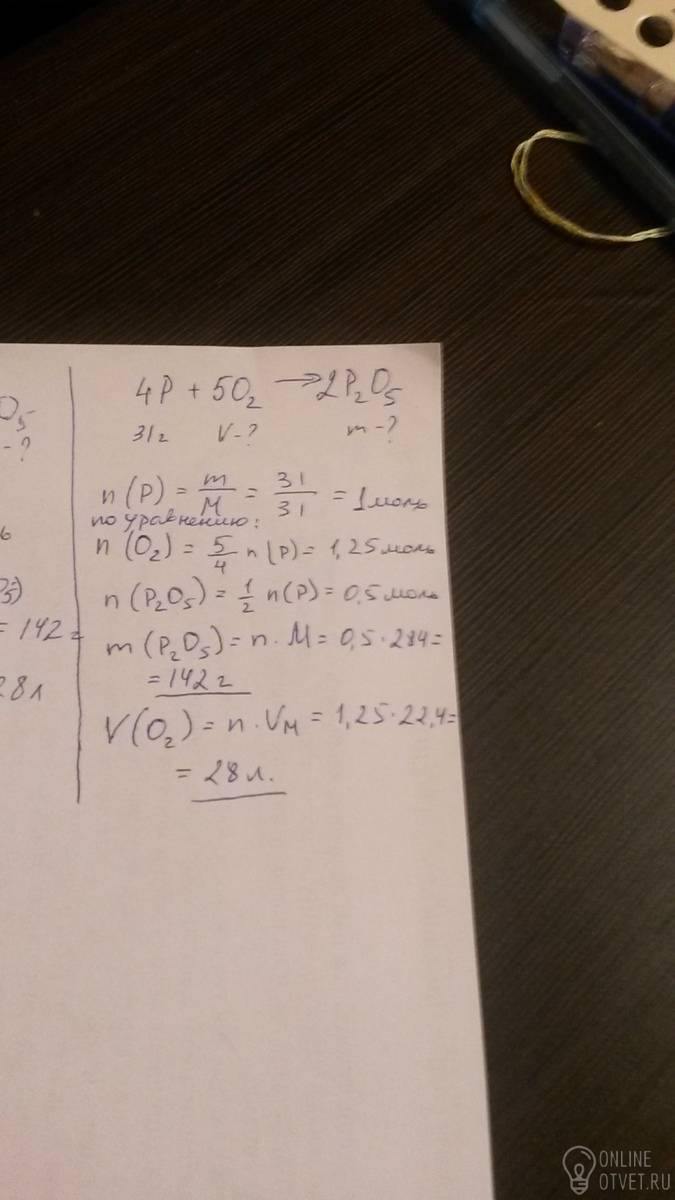 O5
-?
ь
5)
= 142 г
28 л
4P + 5O2 → 2P2O5
31г V-? m-?
n (P) = m/M = 31/31 = 1моль
по уравнению:
n (O2) = 5/4 n (P) = 1,25 моль
n (P2O5) = 1/2 n(P) = 0,5 моль
m (P2O5) = n · M = 0,5 · 284 =
= 142 г
V(O2) = n · VM = 1,25 · 22,4 =
= 28 л.
ONLINE
OTVET.RU